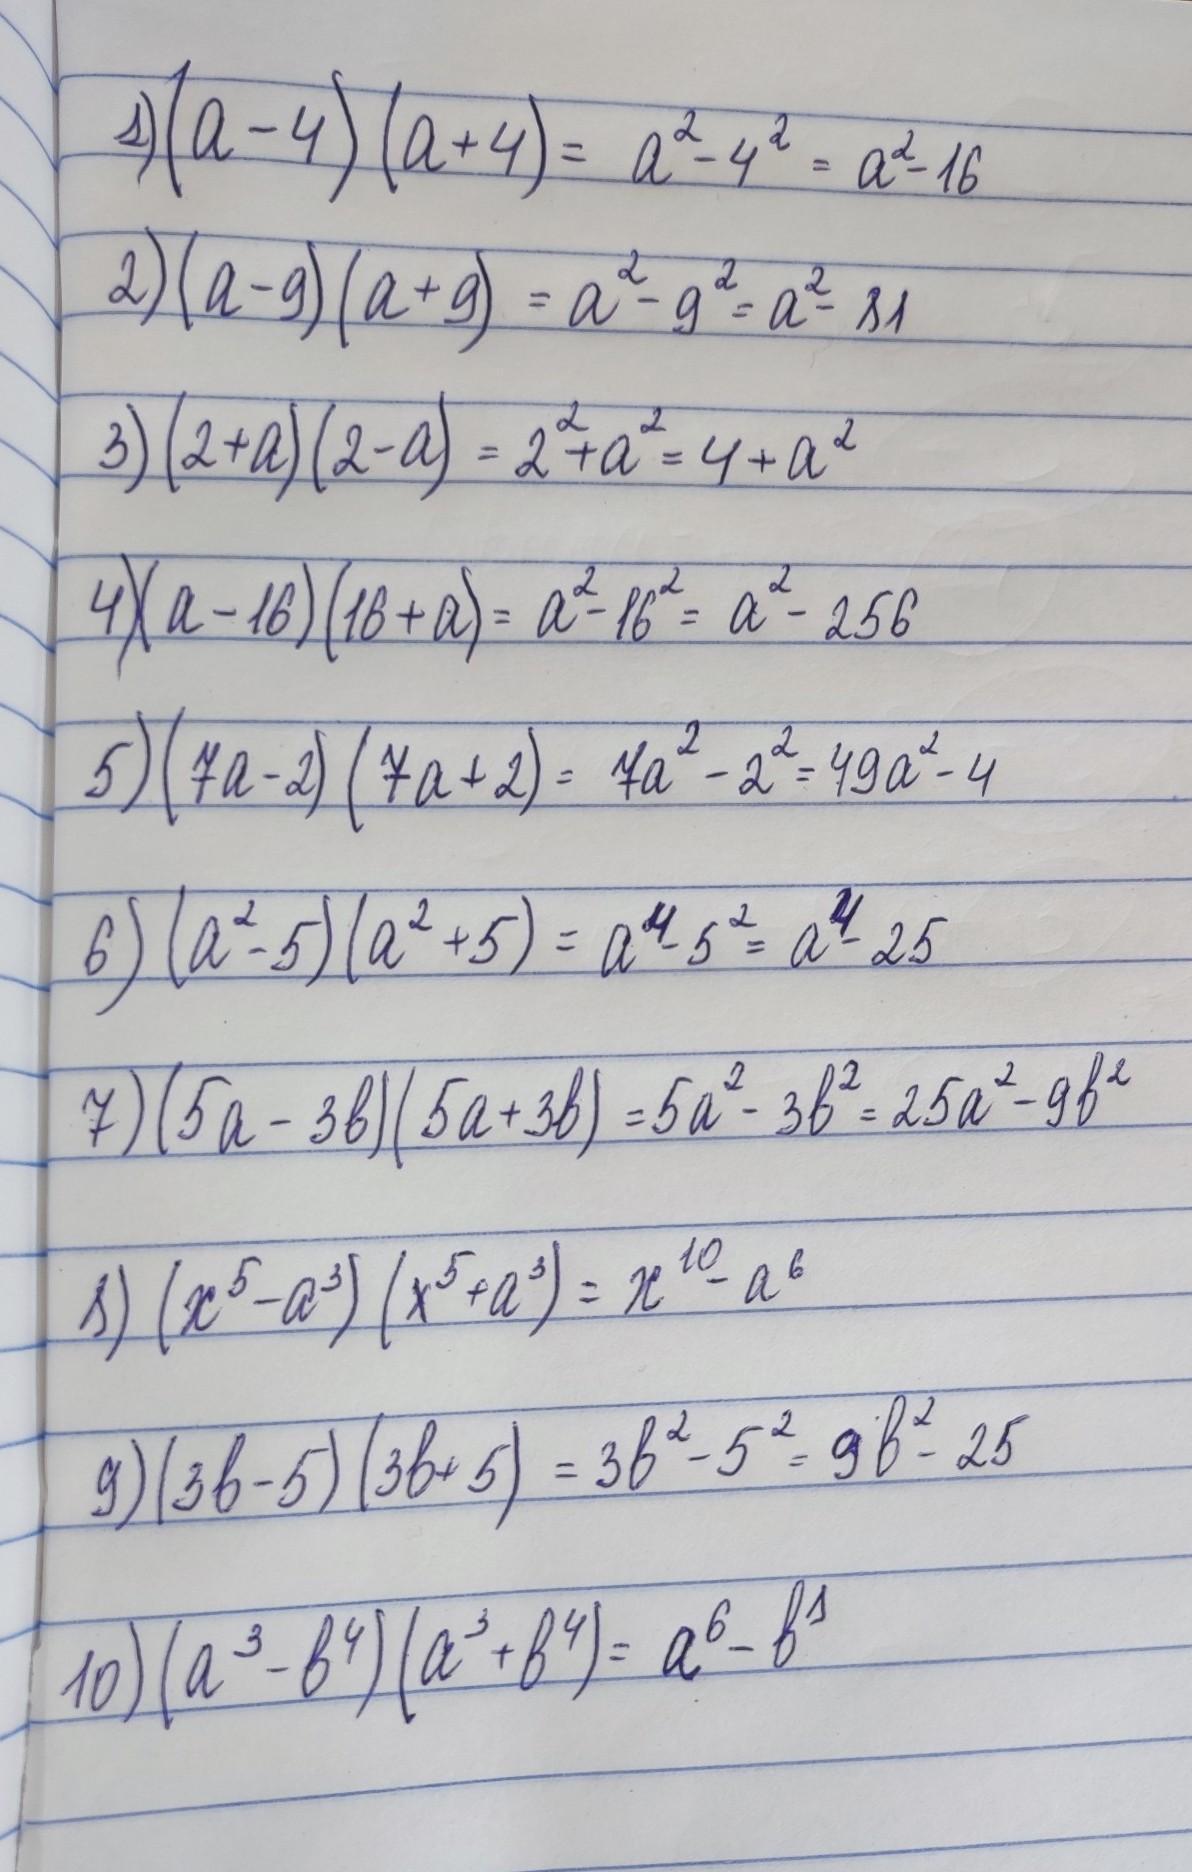 1) (a - 4) (a + 4) = a² - 4² = a² - 16
2) (a - 9) (a + 9) = a² - 9² = a² - 81
3) (2 + a) (2 - a) = 2² + a² = 4 + a²
4) (a - 16) (16 + a) = a² - 16² = a² - 256
5) (7a - 2) (7a + 2) = 7a² - 2² = 49a² - 4
6) (a² - 5) (a² + 5) = a⁴ - 5² = a⁴ - 25
7) (5a - 3b) (5a + 3b) = 5a² - 3b² = 25a² - 9b²
8) (x⁵ - a³) (x⁵ + a³) = x¹⁰ - a⁶
9) (3b - 5) (3b + 5) = 3b² - 5² = 9b² - 25
10) (a³ - b⁴) (a³ + b⁴) = a⁶ - b⁸